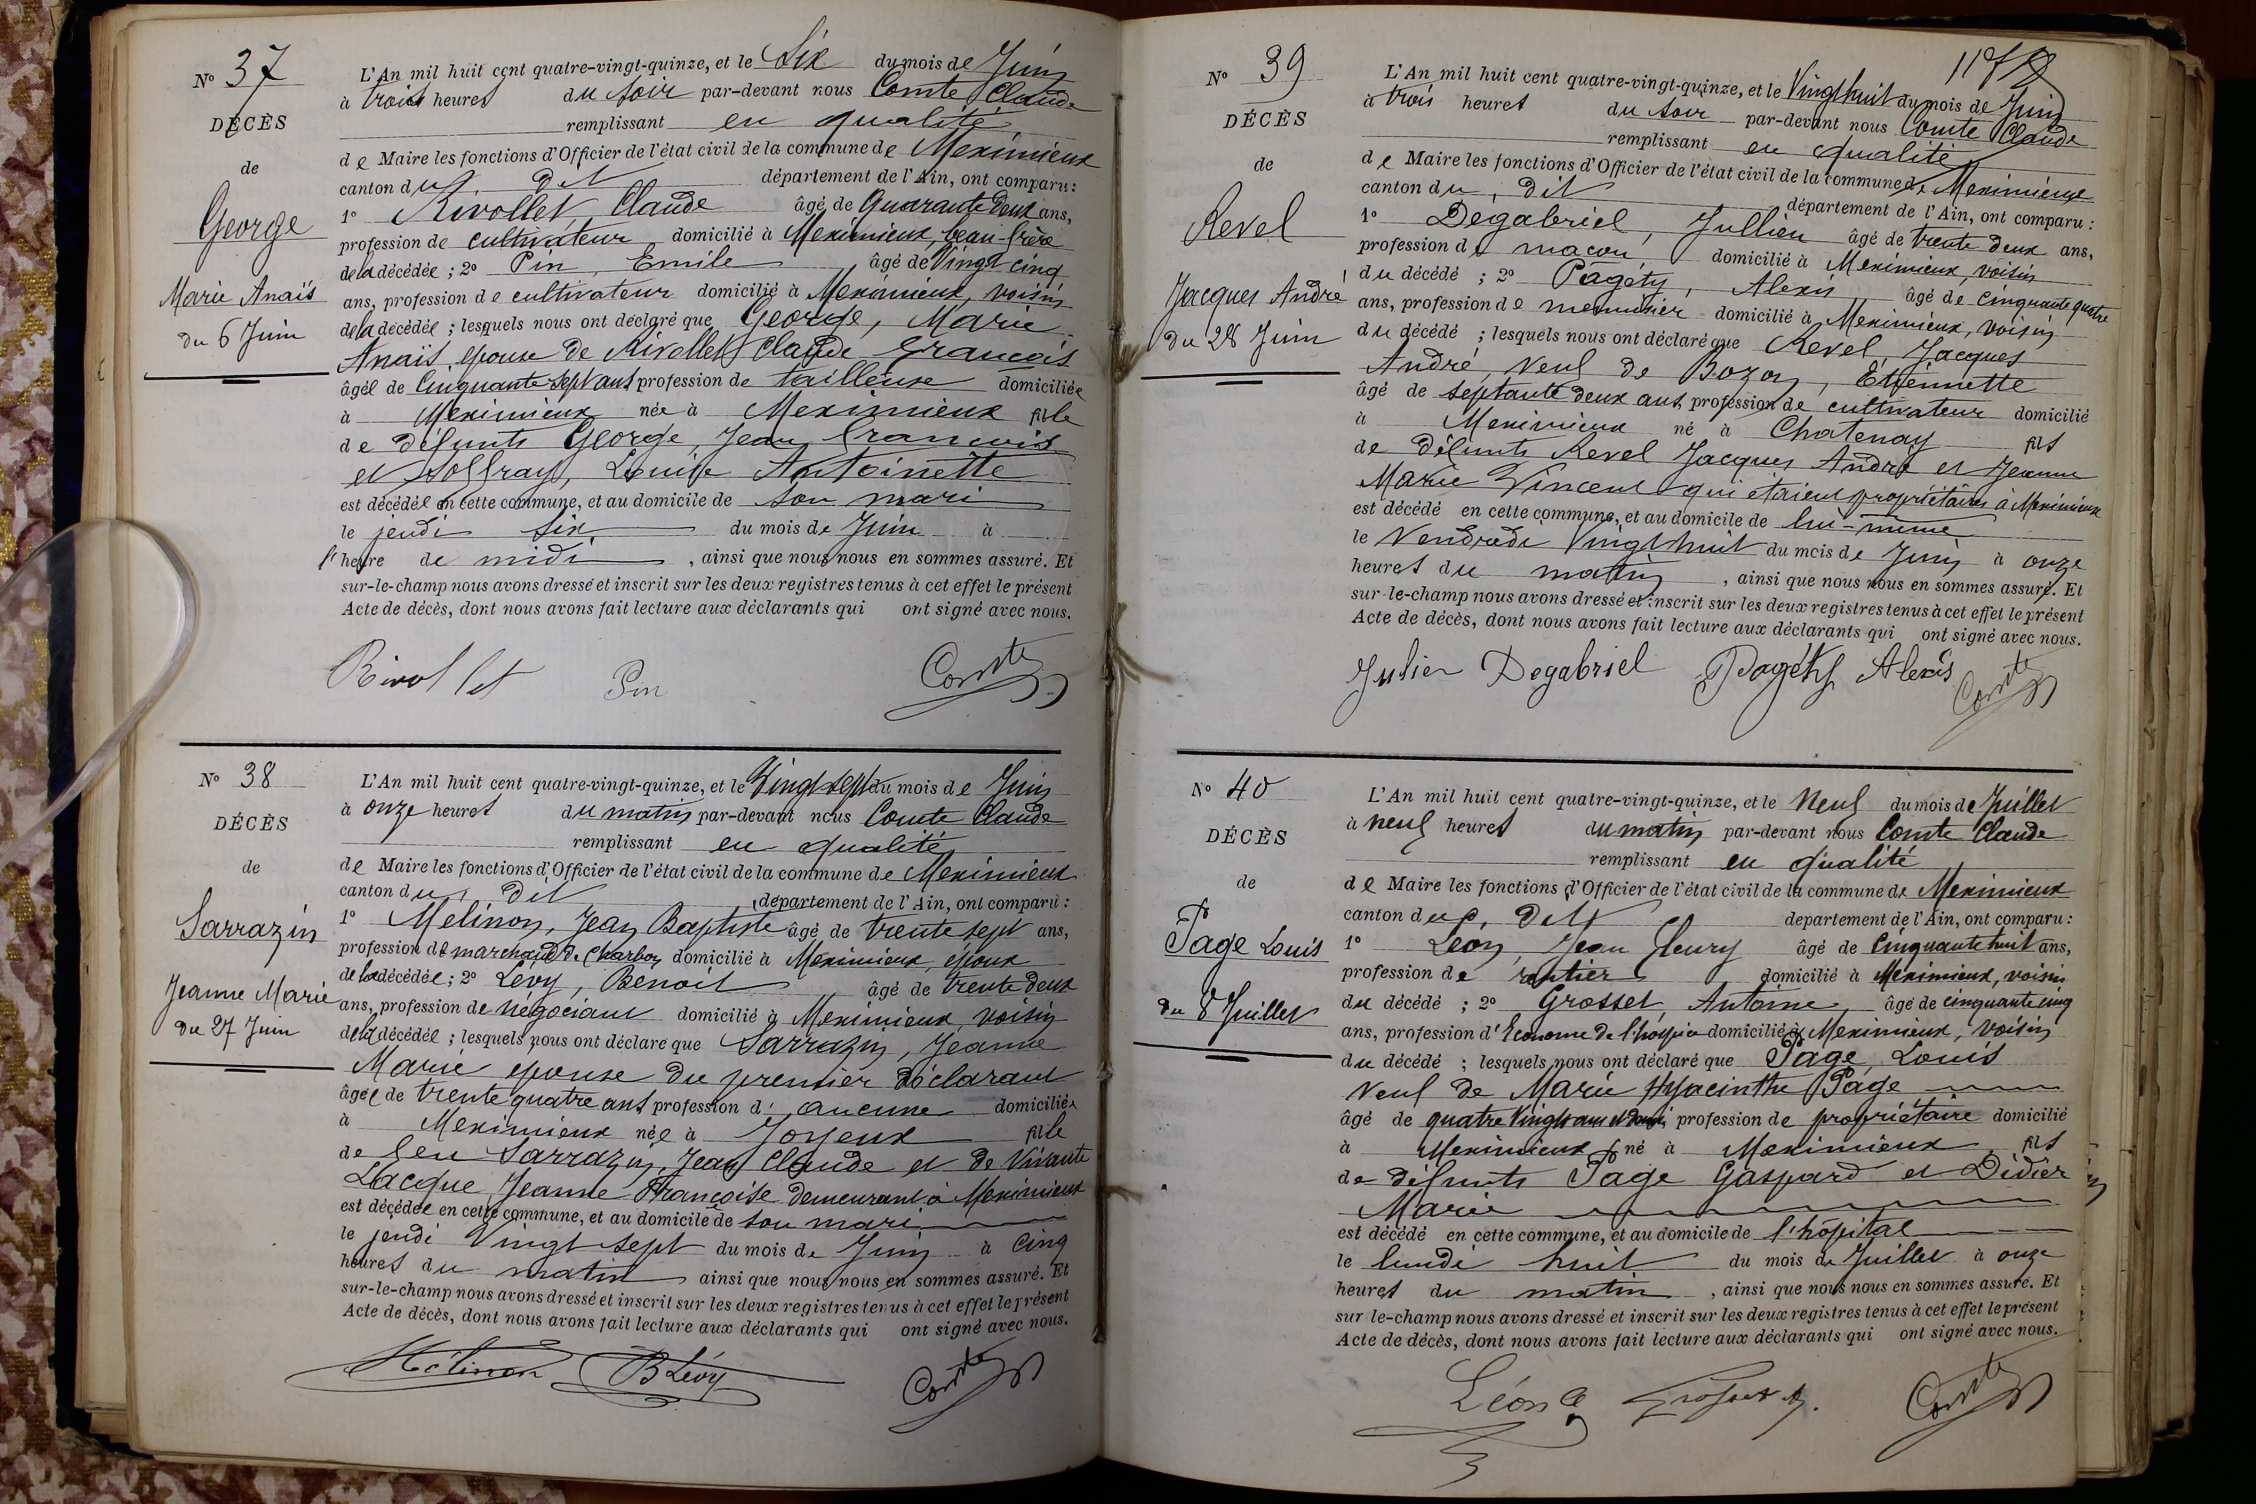 N° 37
DÉCÈS
de
George
Marie Anaïs
du 6 Juin
L'An mil huit cent quatre-vingt-quinze, et le Six du mois de Juin
à trois heures du soir par-devant nous Comte Claude
remplissant en qualité
de Maire les fonctions d'Officier de l'état civil de la commune de Meximieux
canton du dit département de l'Ain, ont comparu :
1° Rivollet, Claude âgé de Quarante deux ans,
profession de cultivateur domicilié à Meximieux, beau-frère
de la décédée ; 2° Pin, Emile âgé de Vingt cinq
ans, profession de cultivateur domicilié à Meximieux, voisin
de la décédée ; lesquels nous ont déclaré que George, Marie
Anaïs, épouse de Rivollet Claude François
âgée de Cinquante sept ans profession de tailleuse domiciliée
à Meximieux née à Meximieux fille
de défunts George, Jean François
et Soffray, Louise Antoinette
est décédée en cette commune, et au domicile de son mari
le jeudi six du mois de Juin à
l'heure de midi, ainsi que nous nous en sommes assuré. Et
sur-le-champ nous avons dressé et inscrit sur les deux registres tenus à cet effet le présent
Acte de décès, dont nous avons fait lecture aux déclarants qui ont signé avec nous.
Rivollet Pin Comte
N° 38
DÉCÈS
de
Sarrazin
Jeanne Marie
du 27 Juin
L'An mil huit cent quatre-vingt-quinze, et le Vingt sept du mois de Juin
à onze heures du matin par-devant nous Comte Claude
remplissant en qualité
de Maire les fonctions d'Officier de l'état civil de la commune de Meximieux
canton du dit département de l'Ain, ont comparu :
1° Mélinon, Jean Baptiste âgé de trente sept ans,
profession de marchand de Charbon domicilié à Meximieux, époux
de la décédée ; 2° Lévy, Benoit âgé de trente deux
ans, profession de négociant domicilié à Meximieux, voisin
de la décédée ; lesquels nous ont déclaré que Sarrazin, Jeanne
Marie épouse du premier déclarant
âgée de trente quatre ans profession d' aucune domiciliée
à Meximieux née à Joyeux fille
de feu Sarrazin, Jean Claude et de Vivante
Lacque Jeanne Françoise demeurant à Meximieux
est décédée en cette commune, et au domicile de son mari
le jeudi Vingt sept du mois de Juin à cinq
heures du matin ainsi que nous nous en sommes assuré. Et
sur-le-champ nous avons dressé et inscrit sur les deux registres tenus à cet effet le présent
Acte de décès, dont nous avons fait lecture aux déclarants qui ont signé avec nous.
Mélinon B Lévy Comte
N° 39
DÉCÈS
de
Revel
Jacques André
du 28 Juin
L'An mil huit cent quatre-vingt-quinze, et le Vingt huit du mois de Juin
à trois heures du soir par-devant nous Comte Claude
remplissant en qualité
de Maire les fonctions d'Officier de l'état civil de la commune de Meximieux
canton du dit département de l'Ain, ont comparu :
1° Dégabriel, Jullien âgé de trente deux ans,
profession de maçon domicilié à Meximieux, voisin
du décédé ; 2° Pagéty, Alexis âgé de cinquante quatre
ans, profession de menuisier domicilié à Meximieux, voisin
du décédé ; lesquels nous ont déclaré que Revel, Jacques
André, veuf de Bozon, Etiennette
âgé de septante deux ans profession de cultivateur domicilié
à Meximieux né à Chatenay fils
de défunts Revel Jacques André et Jeanne
Marie Vincent qui étaient propriétaires à Meximieux
est décédé en cette commune, et au domicile de lui-même
le Vendredi Vingt huit du mois de Juin à onze
heures du matin, ainsi que nous nous en sommes assuré. Et
sur-le-champ nous avons dressé et inscrit sur les deux registres tenus à cet effet le présent
Acte de décès, dont nous avons fait lecture aux déclarants qui ont signé avec nous.
Julien Degabriel Pagéty Alexis Comte
N° 40
DÉCÈS
de
Page Louis
du 8 Juillet
L'An mil huit cent quatre-vingt-quinze, et le Neuf du mois de Juillet
à neuf heures du matin par-devant nous Comte Claude
remplissant en qualité
de Maire les fonctions d'Officier de l'état civil de la commune de Meximieux
canton du dit département de l'Ain, ont comparu :
1° Léon, Jean Fleury âgé de Cinquante huit ans,
profession de rentier domicilié à Meximieux, voisin
du décédé ; 2° Grosset, Antoine âgé de cinquante cinq
ans, profession d'Econome de l'hospice domicilié à Meximieux, voisin
du décédé ; lesquels nous ont déclaré que Page, Louis
veuf de Marie Hyacinthe Page
âgé de quatre Vingts ans et demi profession de propriétaire domicilié
à Meximieux né à Meximieux fils
de défunts Page Gaspard et Didier
Marie
est décédé en cette commune, et au domicile de l'hôpital
le lundi huit du mois de Juillet à onze
heures du matin, ainsi que nous nous en sommes assuré. Et
sur le-champ nous avons dressé et inscrit sur les deux registres tenus à cet effet le présent
Acte de décès, dont nous avons fait lecture aux déclarants qui ont signé avec nous.
Léon Grosset A. Comte